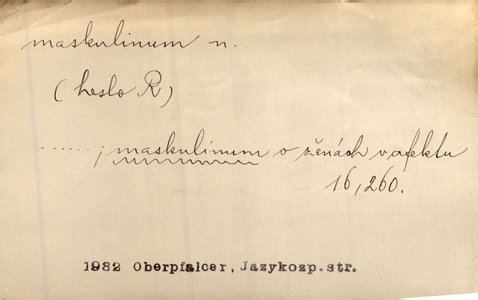 maskulinum n.
(heslo R)
......; maskulinum o ženách v afektu
16, 260.
1932 Oberpfalcer, Jazykozp. str.